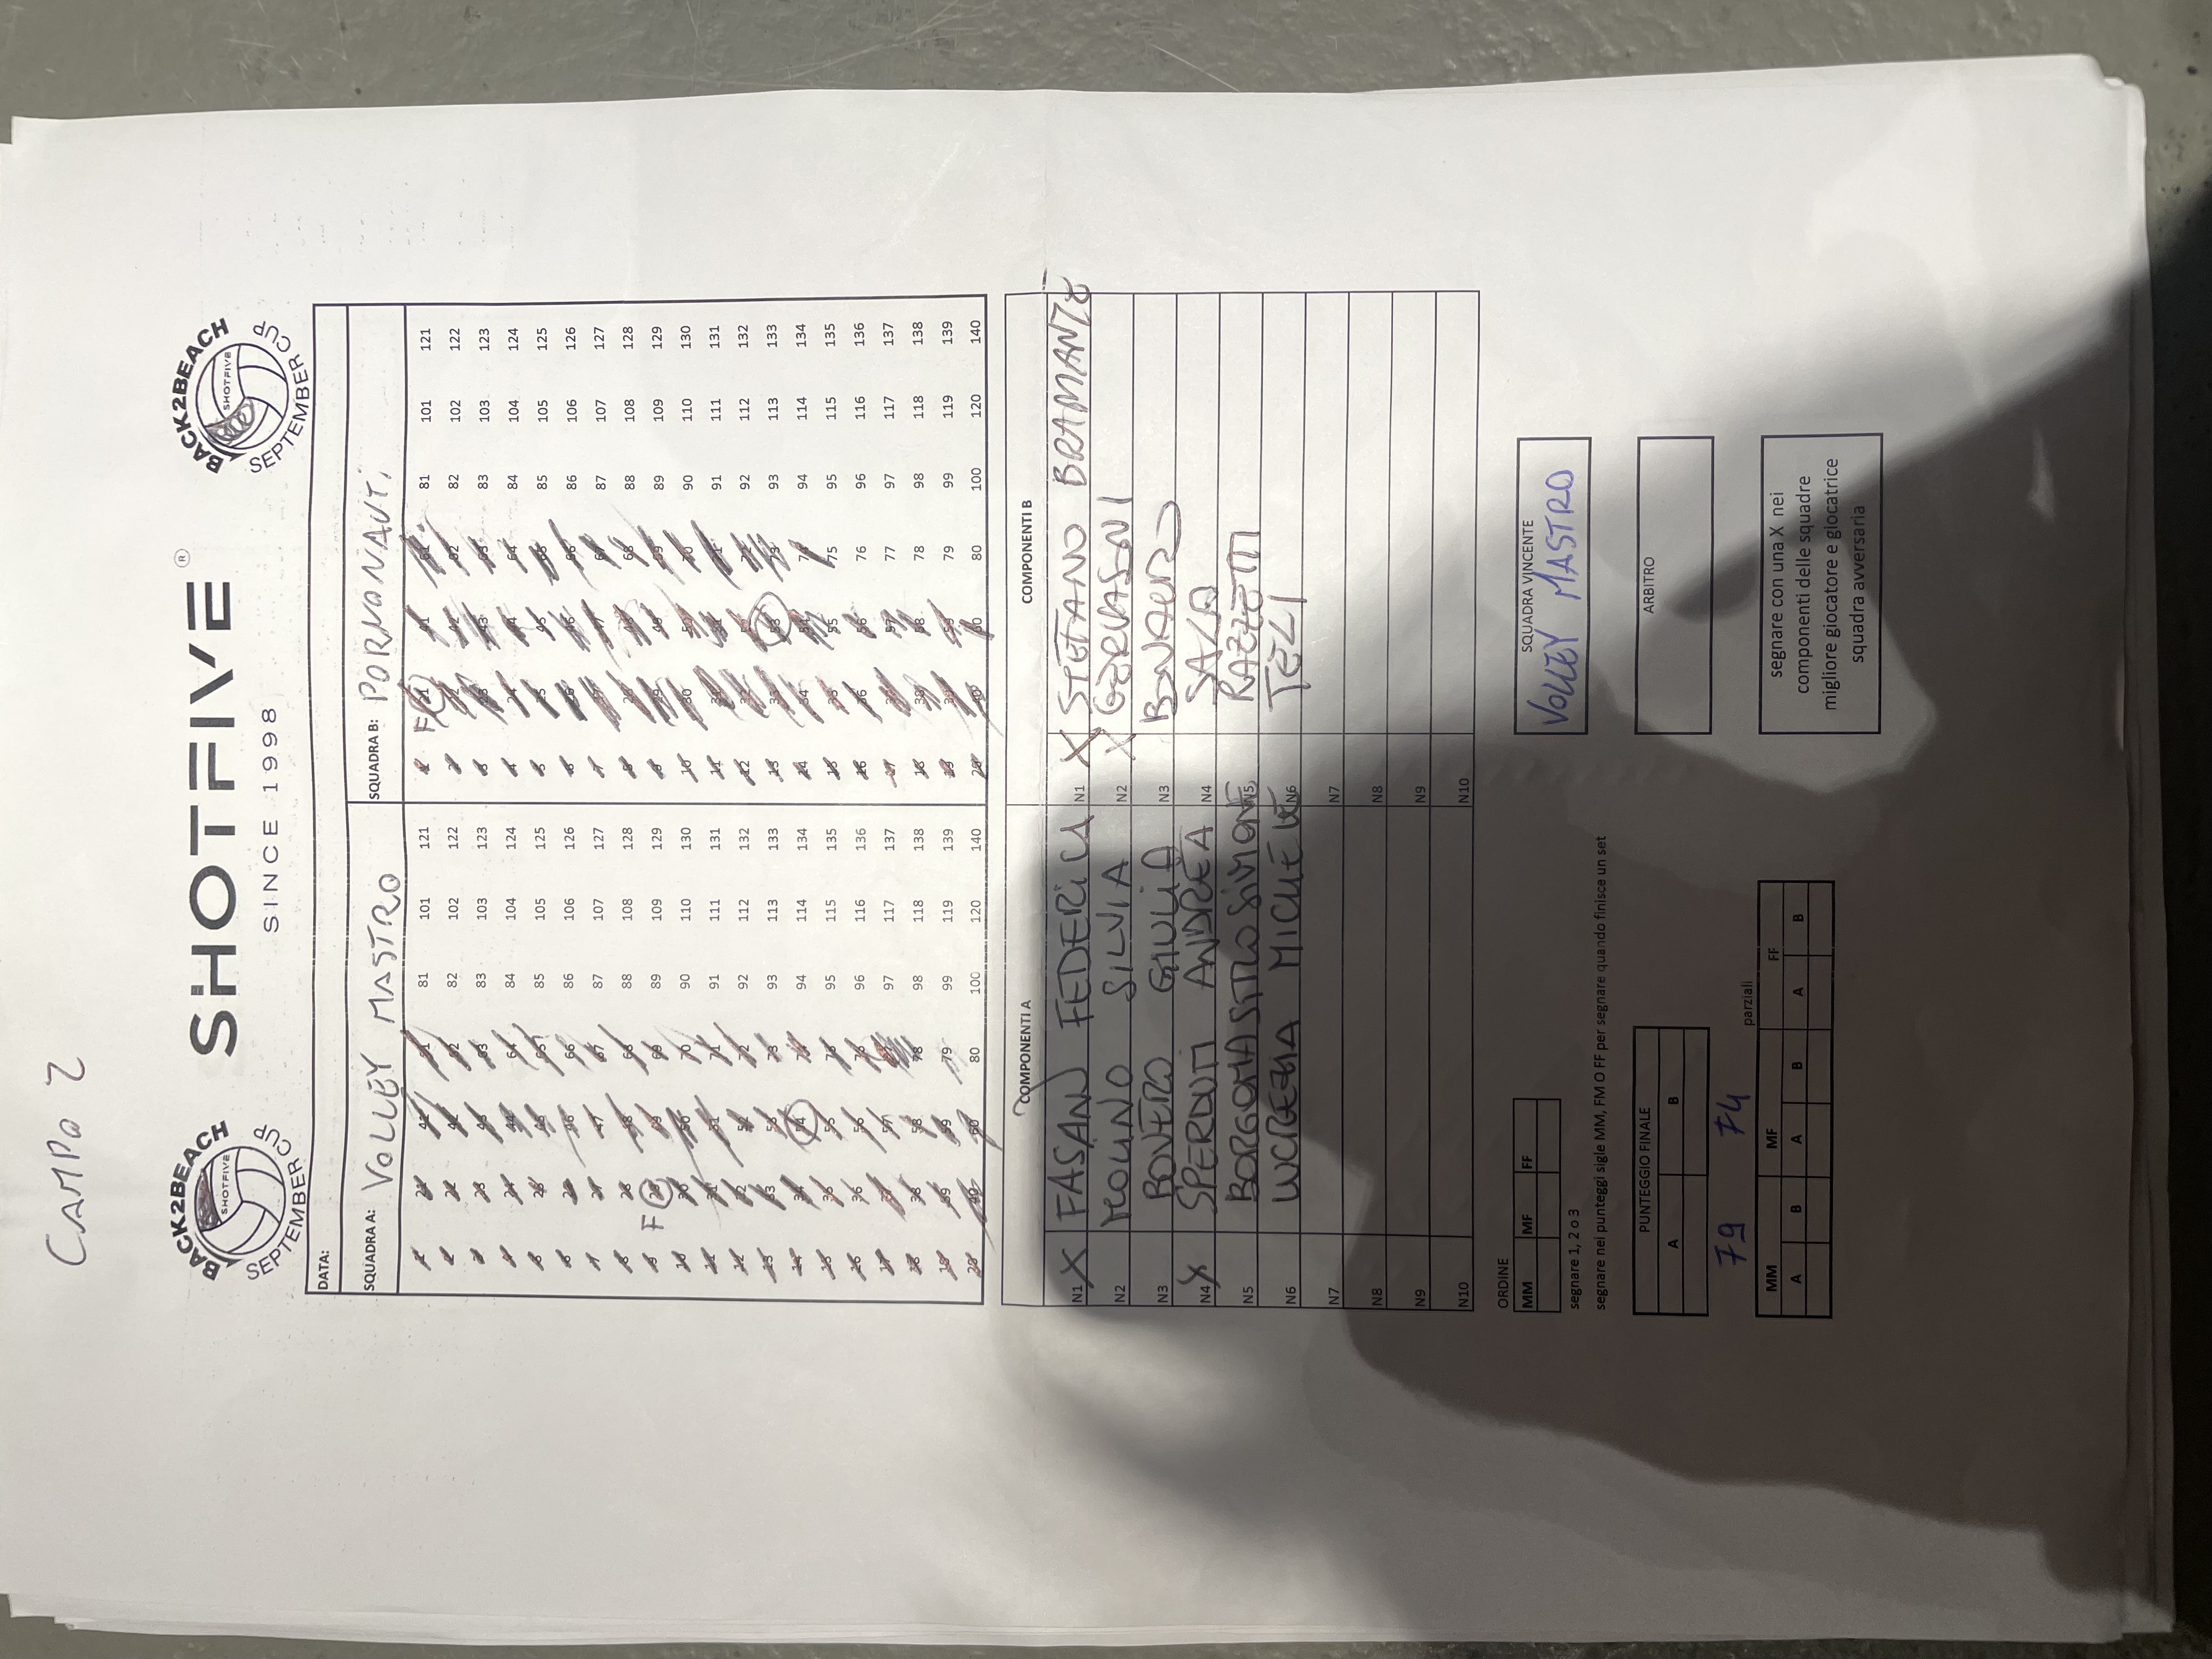 CAMPO 2
BACK2BEACH
SHOTFIVE
SEPTEMBER CUP
SHOTFIVE®
SINCE 1998
BACK2BEACH
SHOTFIVE
SEPTEMBER CUP
DATA:
SQUADRA A: VOLLEY MASTRO
SQUADRA B: PORNONAUTI
1 21 41 61 81 101 121 1 F 21 41 61 81 101 121
2 22 42 62 82 102 122 2 22 42 62 82 102 122
3 23 43 63 83 103 123 3 23 43 63 83 103 123
4 24 44 64 84 104 124 4 24 44 64 84 104 124
5 25 45 65 85 105 125 5 25 45 65 85 105 125
6 26 46 66 86 106 126 6 26 46 66 86 106 126
7 27 47 67 87 107 127 7 27 47 67 87 107 127
8 28 48 68 88 108 128 8 28 48 68 88 108 128
9 F 29 49 69 89 109 129 9 29 49 69 89 109 129
10 30 50 70 90 110 130 10 30 50 70 90 110 130
11 31 51 71 91 111 131 11 31 51 71 91 111 131
12 32 52 72 92 112 132 12 32 52 72 92 112 132
13 33 53 73 93 113 133 13 33 53 73 93 113 133
14 34 54 74 94 114 134 14 34 54 74 94 114 134
15 35 55 75 95 115 135 15 35 55 75 95 115 135
16 36 56 76 96 116 136 16 36 56 76 96 116 136
17 37 57 77 97 117 137 17 37 57 77 97 117 137
18 38 58 78 98 118 138 18 38 58 78 98 118 138
19 39 59 79 99 119 139 19 39 59 79 99 119 139
20 40 60 80 100 120 140 20 40 60 80 100 120 140
COMPONENTI A COMPONENTI B
N1 X FASANO FEDERICA N1 X STEFANO BRAMANTE
N2 MOLINO SILVIA N2 X GERVASONI
N3 BOVERO GIULIA N3
N4 X SPERDUTI ANDREA N4 SALA
N5 BORGOMASTRO SIMONE N5 RAZZETTI
N6 LUCREZIA MICHELE N6 TELI
N7 N7
N8 N8
N9 N9
N10 N10
ORDINE
MM MF FF
segnare 1, 2 o 3
segnare nei punteggi sigle MM, FM O FF per segnare quando finisce un set
SQUADRA VINCENTE
VOLLEY MASTRO
PUNTEGGIO FINALE
A B
79 74
ARBITRO
parziali
MM MF FF
A B A B A B
segnare con una X nei
componenti delle squadre
migliore giocatore e giocatrice
squadra avversaria